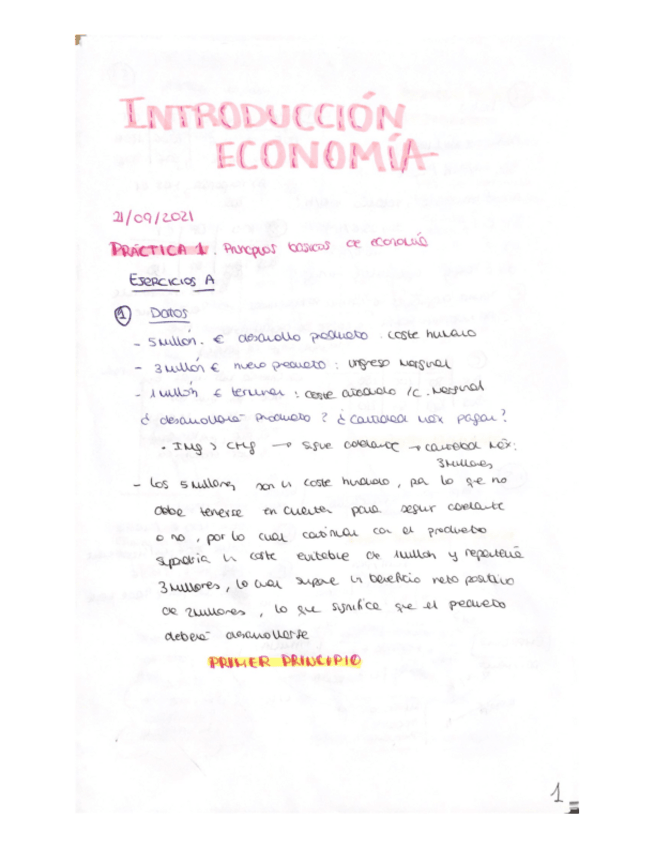 INTRODUCCIÓN
ECONOMÍA
21/09/2021
PRÁCTICA 1. Principios básicos de economía
EJERCICIOS A
1 DATOS
- 5 millón. € desarrollo producto. coste hundido
- 3 millón € nuevo producto: ingreso marginal
- 1 millón € terminar: coste /C. Marginal
¿desarrollará producto? ¿cantidad máx pagar?
· IMg > CMg → sigue adelante → cantidad máx:
3 Millones
- Los 5 millones son un coste hundido, por lo que no
debe tenerse en cuenta para seguir adelante
o no, por lo cual continuar con el producto
supondría un coste evitable de 1 millón y reportaría
3 millones, lo cual supone un beneficio neto positivo
de 2 millones, lo que significa que el producto
deberá desarrollarse
PRIMER PRINCIPIO
1